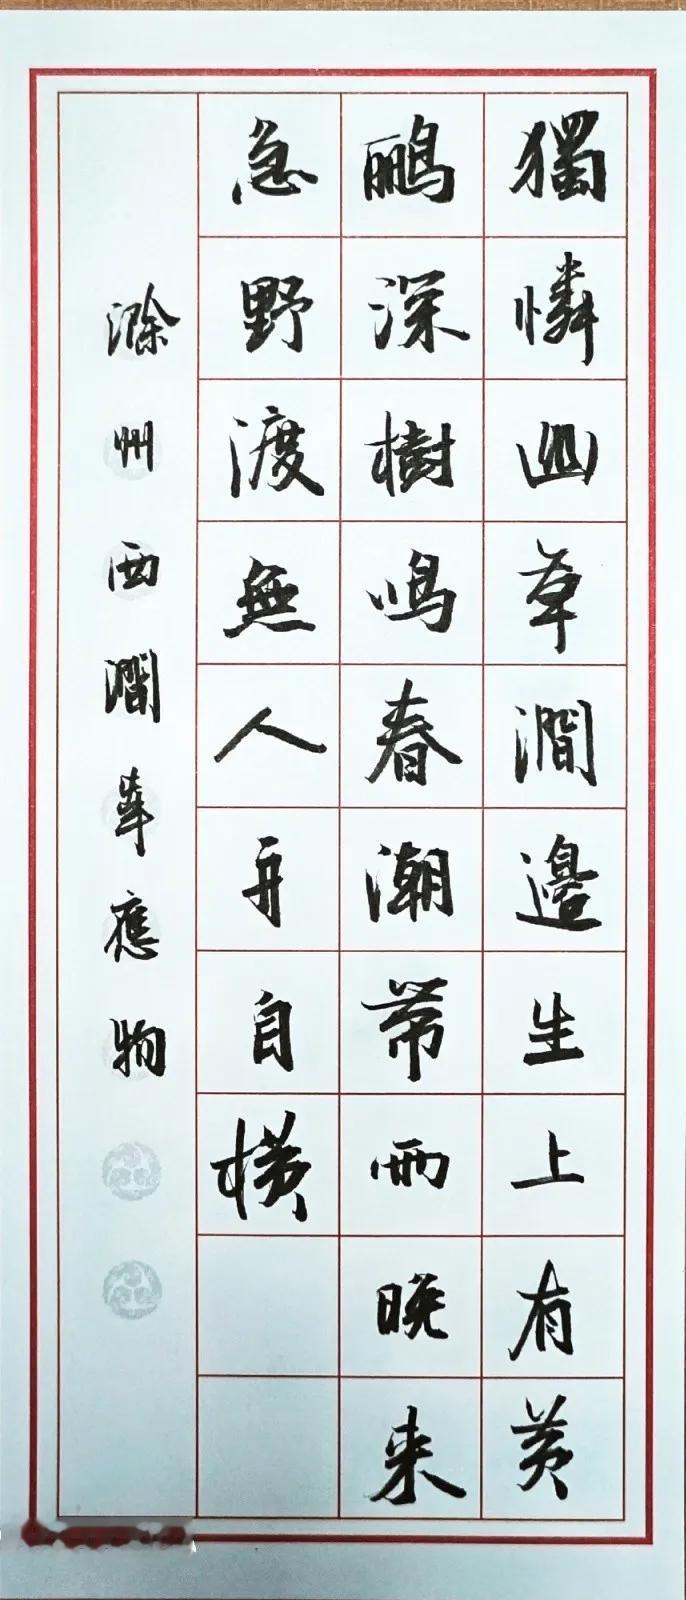 獨憐幽草澗邊生上有黃
鸝深樹鳴春潮帶雨晚来
急野渡無人舟自橫
滁州西澗韋應物